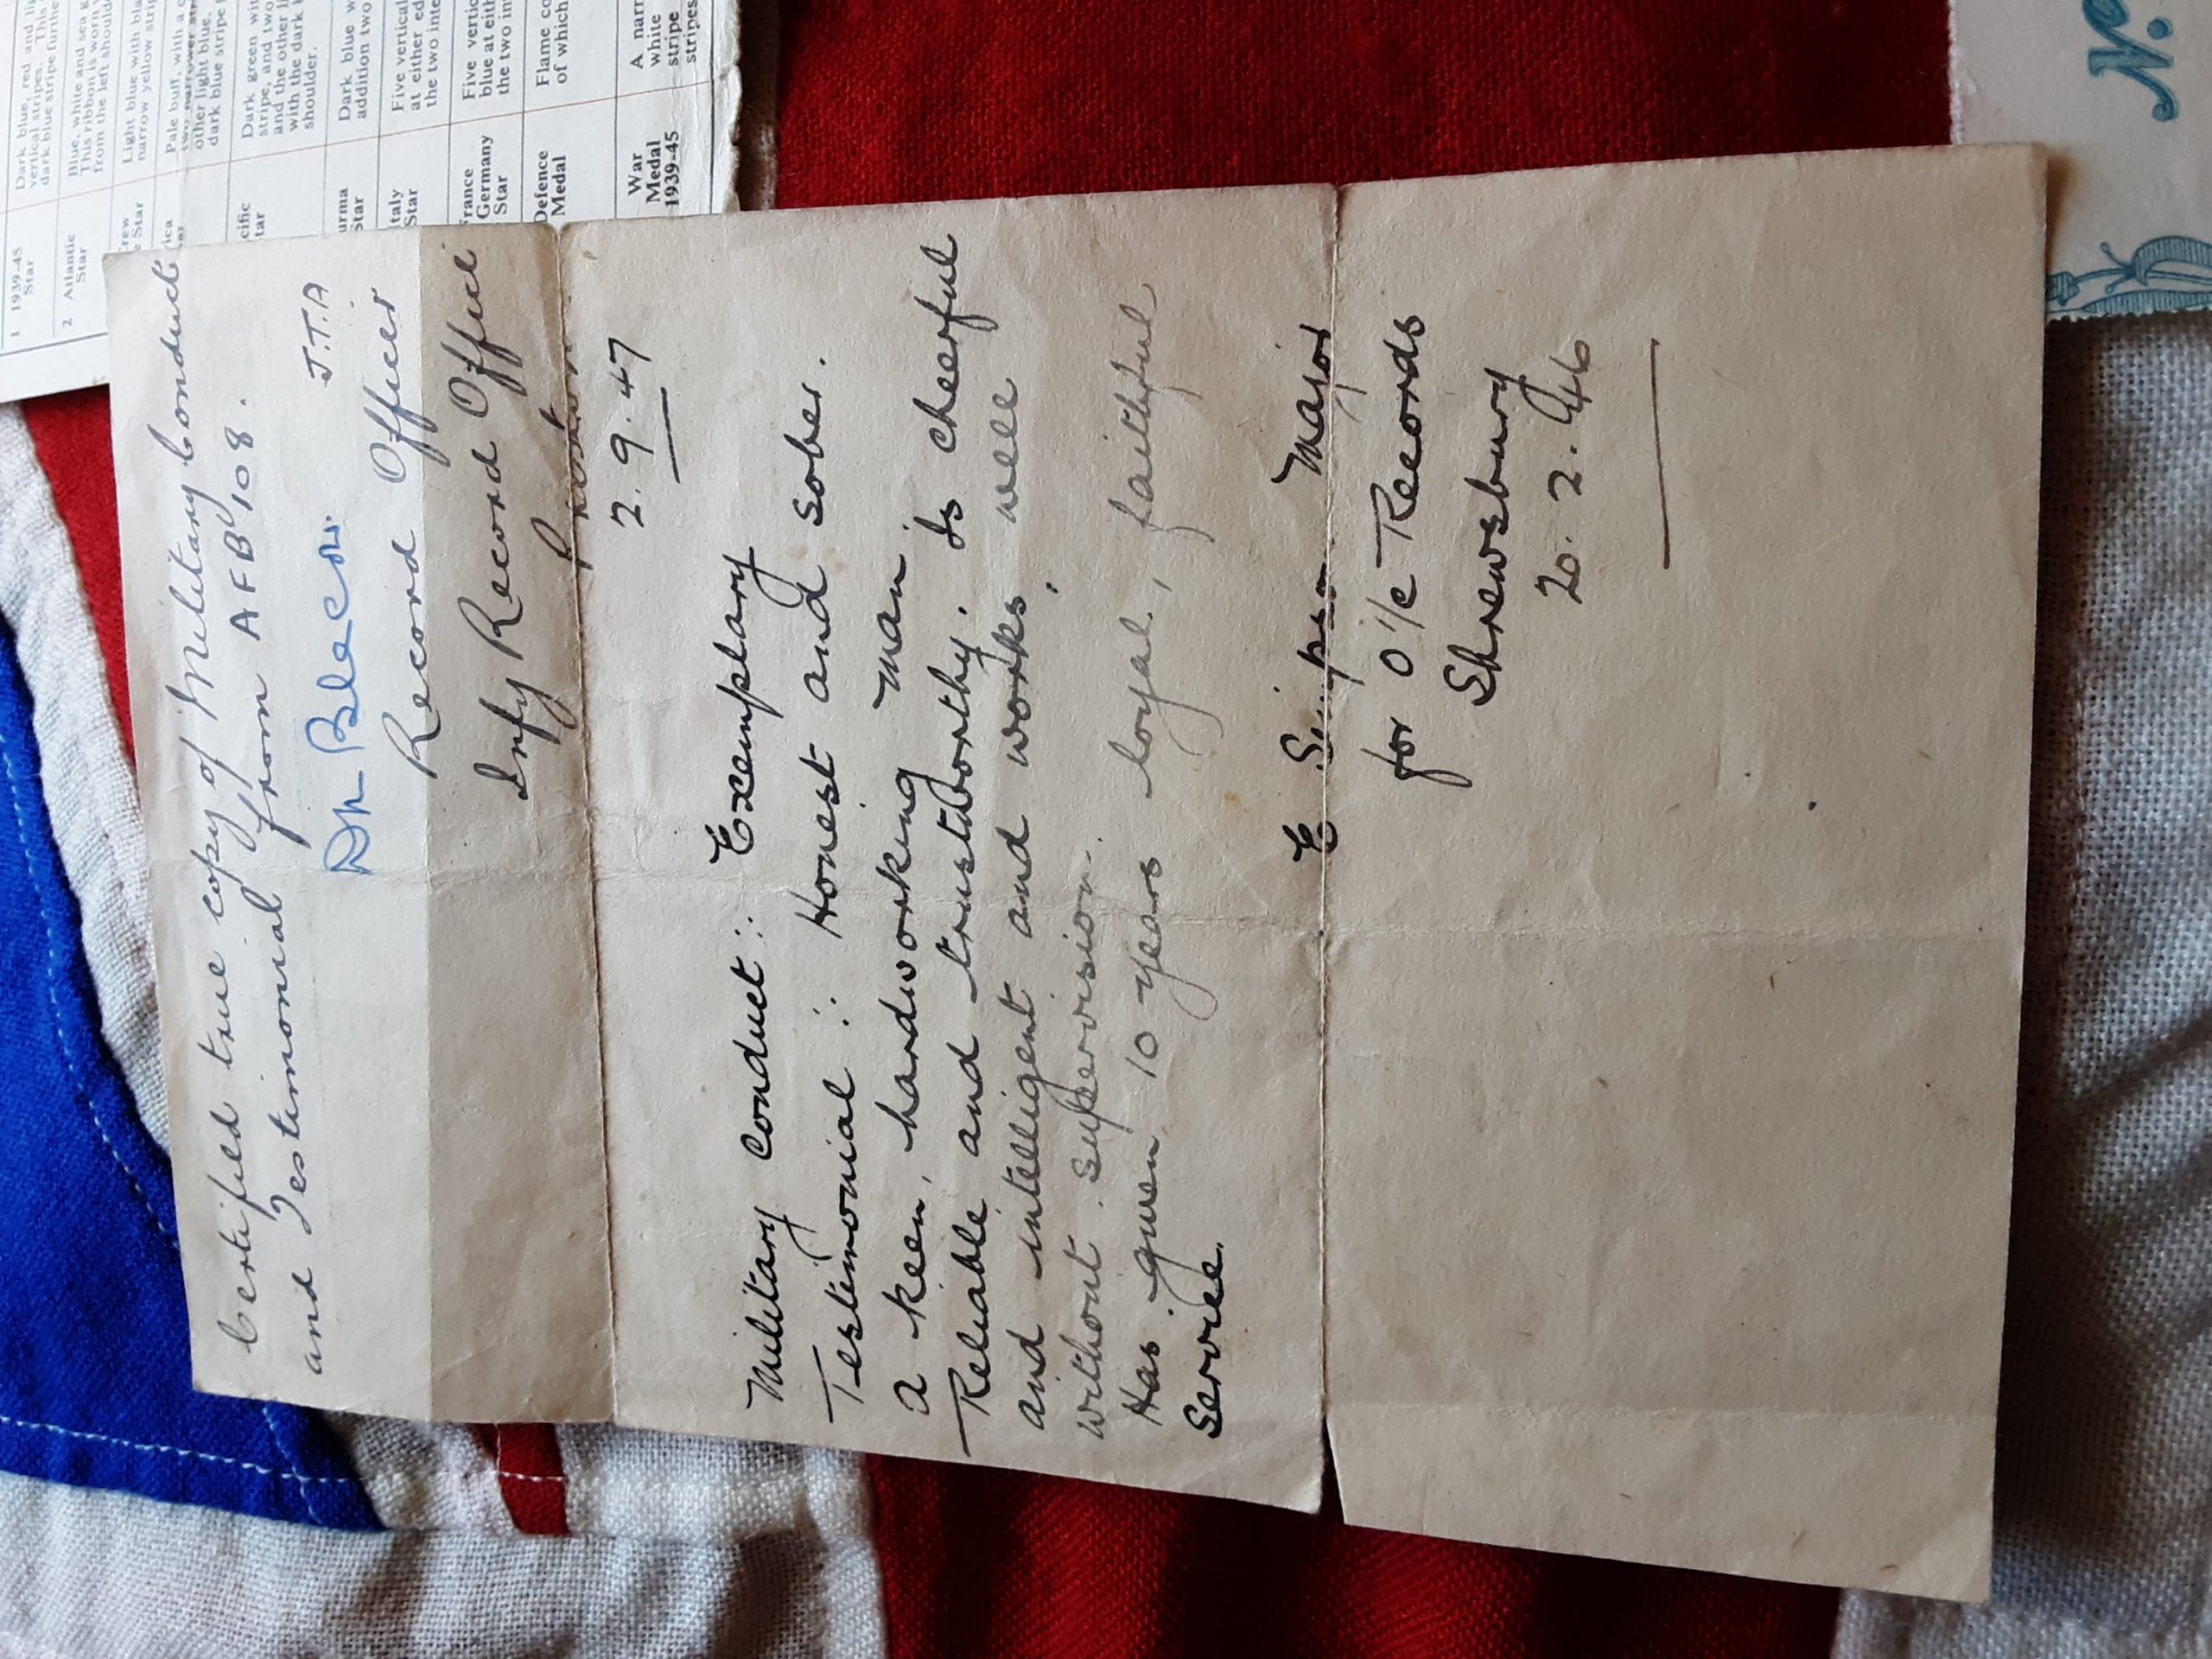 1 1939-45 Star Dark blue, red and
vertical stripes. This
dark blue stripe furthe
2 Atlantic Star Blue, white and sea
This ribbon is worn
from the left shoulde
Star Light blue with bla
narrow yellow strip
Pale buff, with a
two narrower
other light blue.
dark blue stripe
cific tar Dark green wit
stripe, and two
and the other li
with the dark
shoulder.
urma Star Dark blue w
addition two
taly Star Five vertical
at either ed
the two inte
rance Germany Star Five vertic
blue at eith
the two in
Defence Medal Flame co
of which
War Medal 1939-45 A narr
white
stripe
stripes
No
Certified true copy of Military Conduct
and Testimonial from AFB 108.
J.T.A
Record Officer
Infy Record Office
Preston
2.9.47
Military Conduct: Exemplary
Testimonial: Honest and sober.
A keen, hardworking man.
Reliable and trustworthy. Is cheerful
and intelligent and works well
without supervision.
Has given 10 years loyal, faithful
Service.
E Simpson Major
for O i/c Records
Shrewsbury
20.2.46